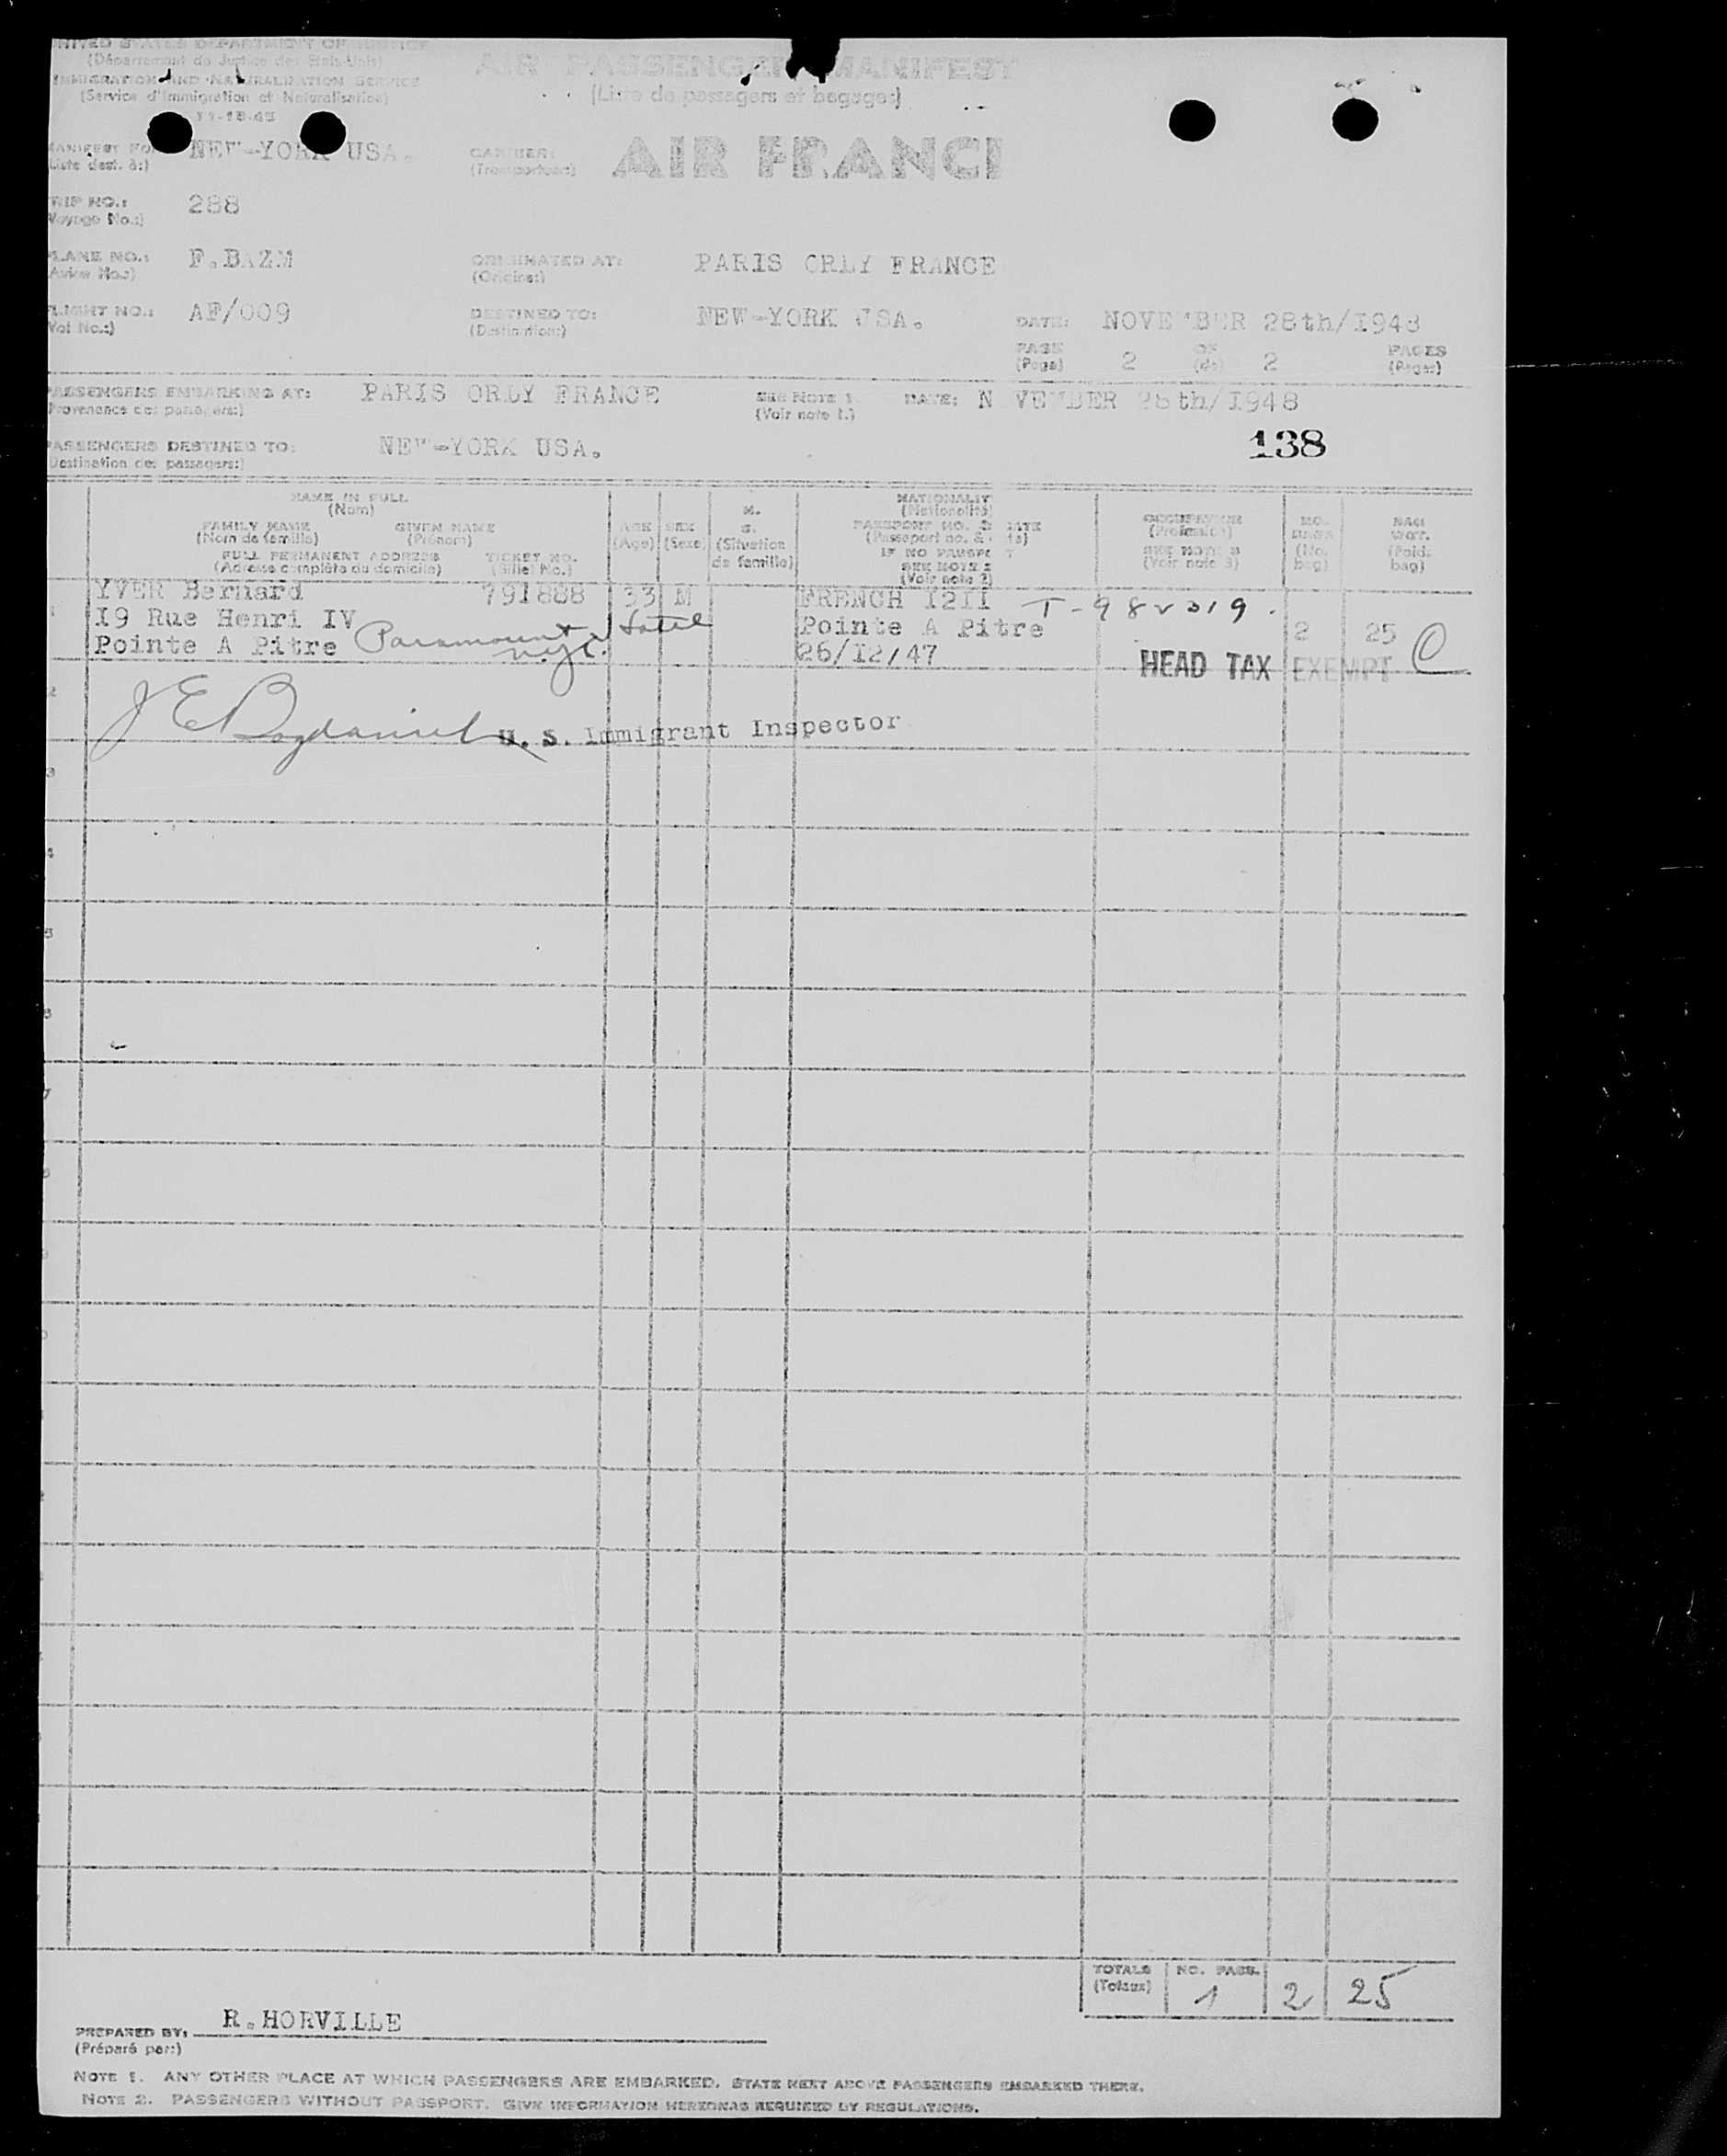 UNITED STATES DEPARTMENT OF JUSTICE
(Département de Justice des Etats-Unis)
IMMIGRATION AND NATURALIZATION SERVICE
(Service d'Immigration et Naturalisation)
AIR PASSENGER MANIFEST
(Liste de passagers et bagages)
MANIFEST FO
NEW-YORK USA.
Liste dest. à:)
CARRIER:
(Transporteur:)
AIR FRANC
RIP NO.:
Voyage No.:)
288
LANE NO.:
Avion No.:)
F.BAZM
ORIGINATED AT:
(Origine:)
PARIS ORLY FRANCE
LIGHT NO.:
Vol No.:)
AF/009
DESTINED TO:
(Destination:)
NEW-YORK USA.
DATE:
NOVE BER 28th/I948
PAGE
(Page)
2
OF
(de)
2
PAGES
(Pages)
PASSENGERS EMBARKING AT:
Provenance des passagers:)
PARIS ORLY FRANCE
SEE NOTE 1.
(Voir note 1.)
DATE:
N VEMBER 28th/I948
PASSENGERS DESTINED TO:
Destination des passagers:)
NEW-YORK USA.
138
NAME IN FULL
(Nom)
FAMILY NAME
(Nom de famille)
GIVEN NAME
(Prénom)
FULL PERMANENT ADDRESS
(Adresse complète du domicile)
TICKET NO.
(Billet No.)
AGE
(Age)
SEX
(Sexe)
M.
S.
(Situation
de famille)
NATIONALIT
(Nationalité)
PASSPORT NO. &
(Passeport no. &
IF NO PASSPO T
SEE NOTE 2
(Voir note 2)
OCCUPATION
(Profession)
SEE NOTE 3
(Voir note 3)
NO.
(No.
bag)
BAG
WGT.
(Poids
bag)
YVER Bernard 791888 33 M FRENCH I2II T-982319.
I9 Rue Henri IV Paramount Hotel Pointe A Pitre 2 25
Pointe A Pitre nyc. 26/I2/47
HEAD TAX EXEMPT
U. S. Immigrant Inspector
TOTALS
(Totaux)
NO. PASS.
1
2
25
R.HORVILLE
PREPARED BY:
(Préparé par:)
NOTE 1. ANY OTHER PLACE AT WHICH PASSENGERS ARE EMBARKED, STATE NEXT ABOVE PASSENGERS EMBARKED THERE.
NOTE 2. PASSENGERS WITHOUT PASSPORT, GIVE INFORMATION HEREON AS REQUIRED BY REGULATIONS.